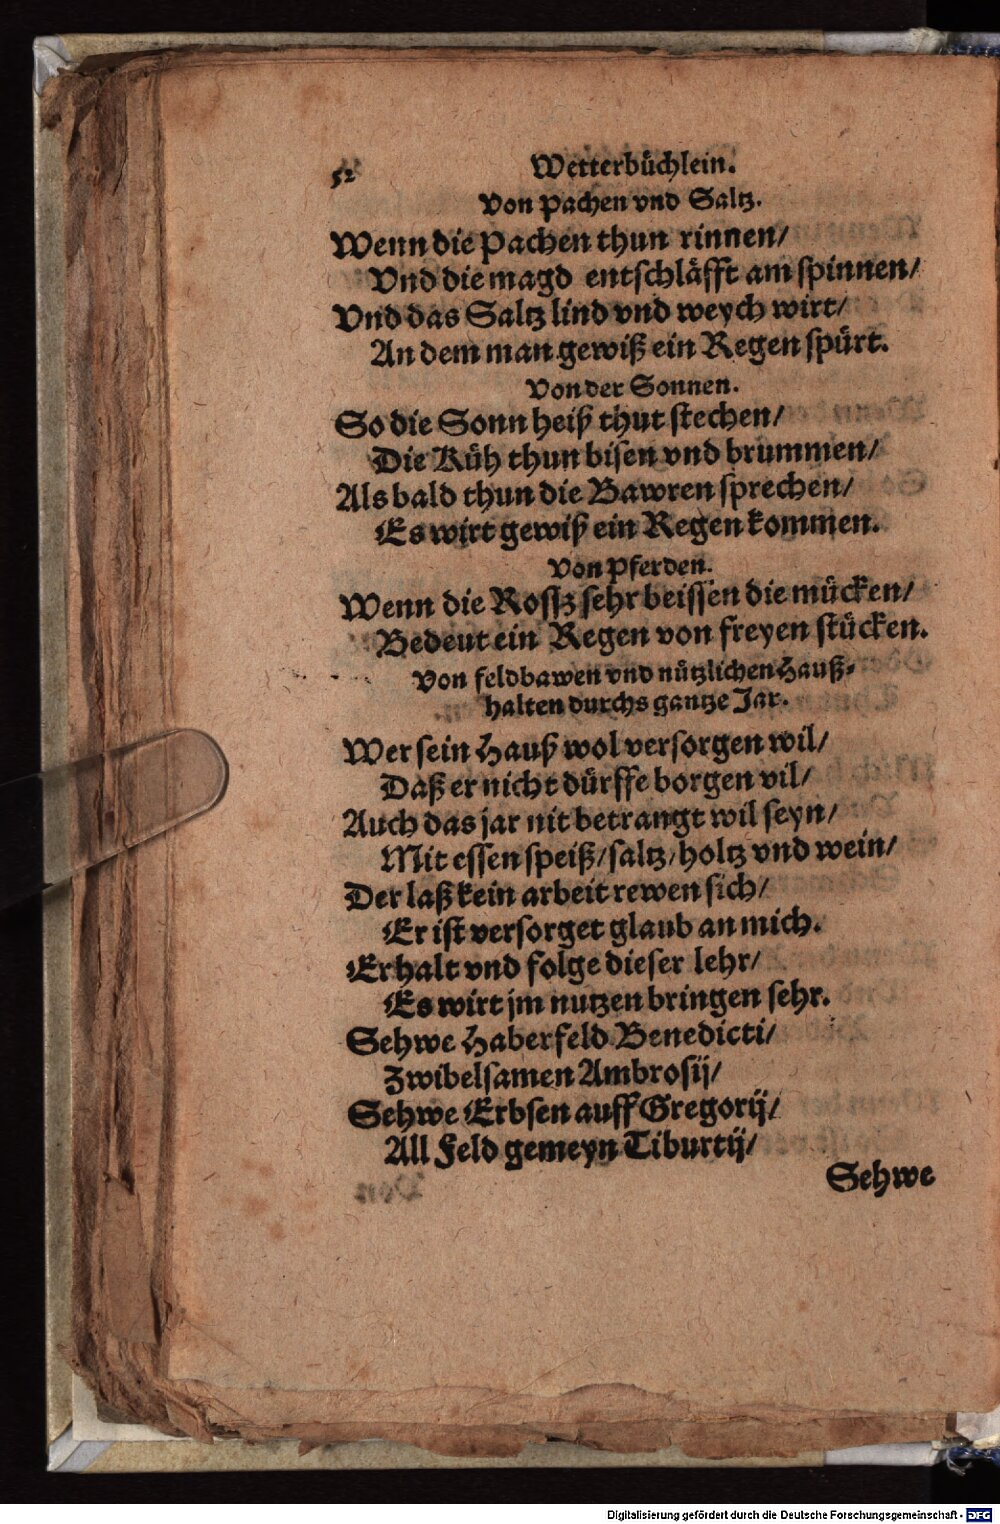 52 Wetterbüchlein.
Von Pachen vnd Saltz.
Wenn die Pachen thun rinnen/
Vnd die magd entschläfft am spinnen/
Vnd das Saltz lind vnd weych wirt/
An dem man gewiß ein Regen spürt.
Von der Sonnen.
So die Sonn heiß thut stechen/
Die Küh thun bisen vnd brummen/
Als bald thun die Bawren sprechen/
Es wirt gewiß ein Regen kommen.
Von Pferden.
Wenn die Rossz sehr beissen die mücken/
Bedeut ein Regen von freyen stücken.
Von feldbawen vnd nützlichen Hauß-
halten durchs gantze Jar.
Wer sein Hauß wol versorgen wil/
Daß er nicht dürffe borgen vil/
Auch das jar nit betrangt wil seyn/
Mit essen speiß/saltz/holtz vnd wein/
Der laß kein arbeit rewen sich/
Er ist versorget glaub an mich.
Er halt vnd folge dieser lehr/
Es wirt jm nutzen bringen sehr.
Sehwe Haberfeld Benedicti/
Zwibelsamen Ambrosij/
Sehwe Erbsen auff Gregorij/
All Feld gemeyn Tiburtij/
Sehwe
Digitalisierung gefördert durch die Deutsche Forschungsgemeinschaft - DFG